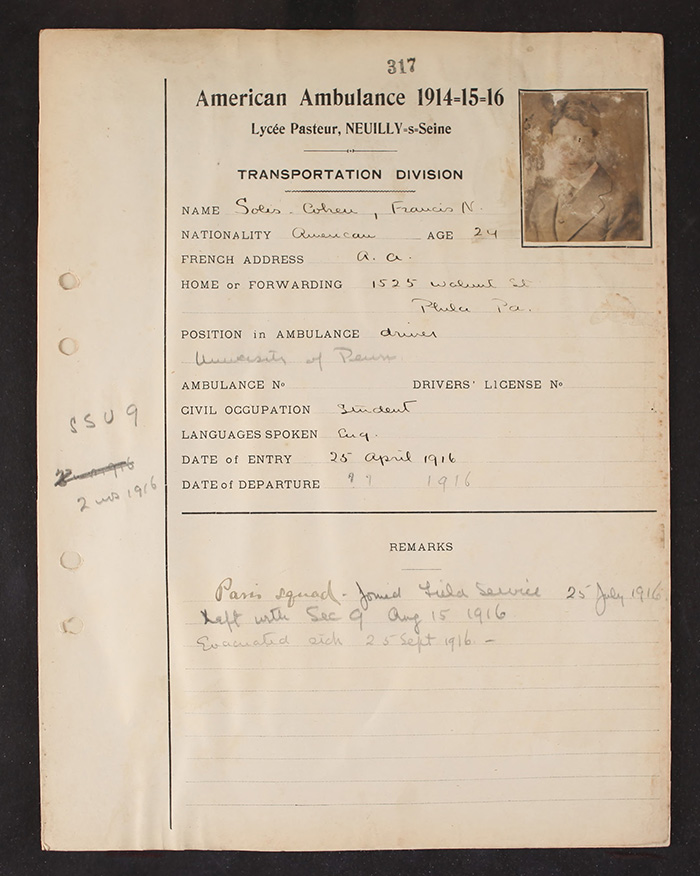 317
American Ambulance 1914=15=16
Lycée Pasteur, NEUILLY=s=Seine
TRANSPORTATION DIVISION
NAME Solis-Cohen, Francis N.
NATIONALITY American AGE 24
FRENCH ADDRESS A. A.
HOME or FORWARDING 1525 Walnut St
Phila Pa.
POSITION in AMBULANCE driver
University of Penn.
AMBULANCE No DRIVERS' LICENSE No
CIVIL OCCUPATION Student
LANGUAGES SPOKEN Eng.
DATE of ENTRY 25 April 1916
DATE of DEPARTURE 1916
SSU 9
2 mos 1916
REMARKS
Paris squad - Joined Field Service 25 July 1916
Left with Sec 9 Aug 15 1916
Evacuated sick 25 Sept 1916. -